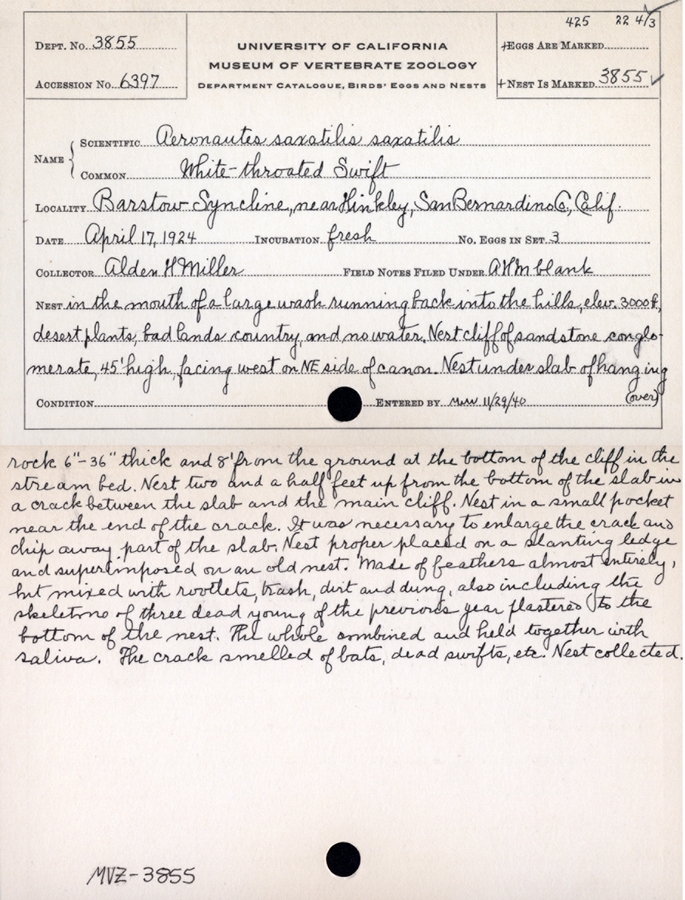 425 22 4/3
DEPT. No. 3855
UNIVERSITY OF CALIFORNIA
+EGGS ARE MARKED
MUSEUM OF VERTEBRATE ZOOLOGY
ACCESSION No. 6397
DEPARTMENT CATALOGUE, BIRDS' EGGS AND NESTS
+NEST IS MARKED 3855 ✓
NAME { SCIENTIFIC Aeronautes saxatilis saxatilis
COMMON White-throated Swift
LOCALITY Barstow Syncline, near Hinkley, San Bernardino Co, Calif.
DATE April 17, 1924 INCUBATION fresh No. EGGS IN SET 3
COLLECTOR Alden H Miller FIELD NOTES FILED UNDER AHM blank
NEST in the mouth of a large wash running back into the hills, elev. 3000 ft,
desert plants, bad lands country, and no water. Nest cliff of sandstone conglo-
merate, 45' high, facing west on NE side of canon. Nest under slab of hanging
CONDITION ENTERED BY MWW 11/29/40 (over)
rock 6"-36" thick and 8' from the ground at the bottom of the cliff in the
stream bed. Nest two and a half feet up from the bottom of the slab in
a crack between the slab and the main cliff. Nest in a small pocket
near the end of the crack. It was necessary to enlarge the crack and
chip away part of the slab. Nest proper placed on a slanting ledge
and superimposed on an old nest. Made of feathers almost entirely,
but mixed with rootlets, trash, dirt and dung, also including the
skeletons of three dead young of the previous year plastered to the
bottom of the nest. The whole combined and held together with
saliva. The crack smelled of bats, dead swifts, etc. Nest collected.
MVZ-3855